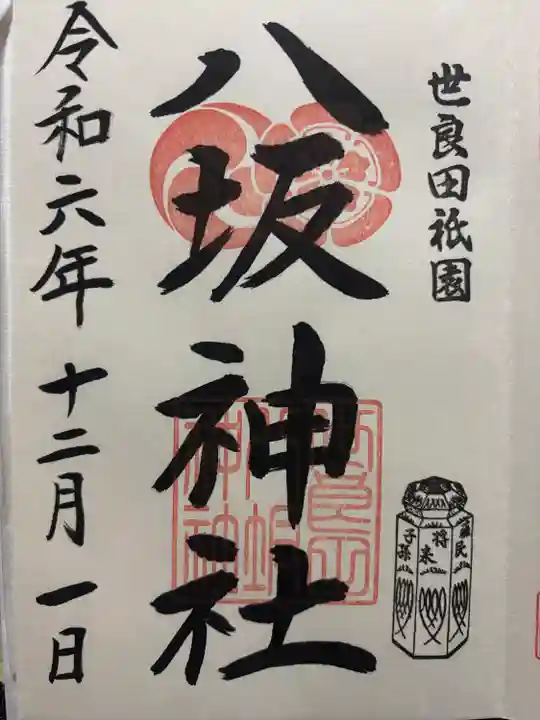 世良田祇園
八坂神社
令和六年 十二月 一日
蘇民
将来
子孫